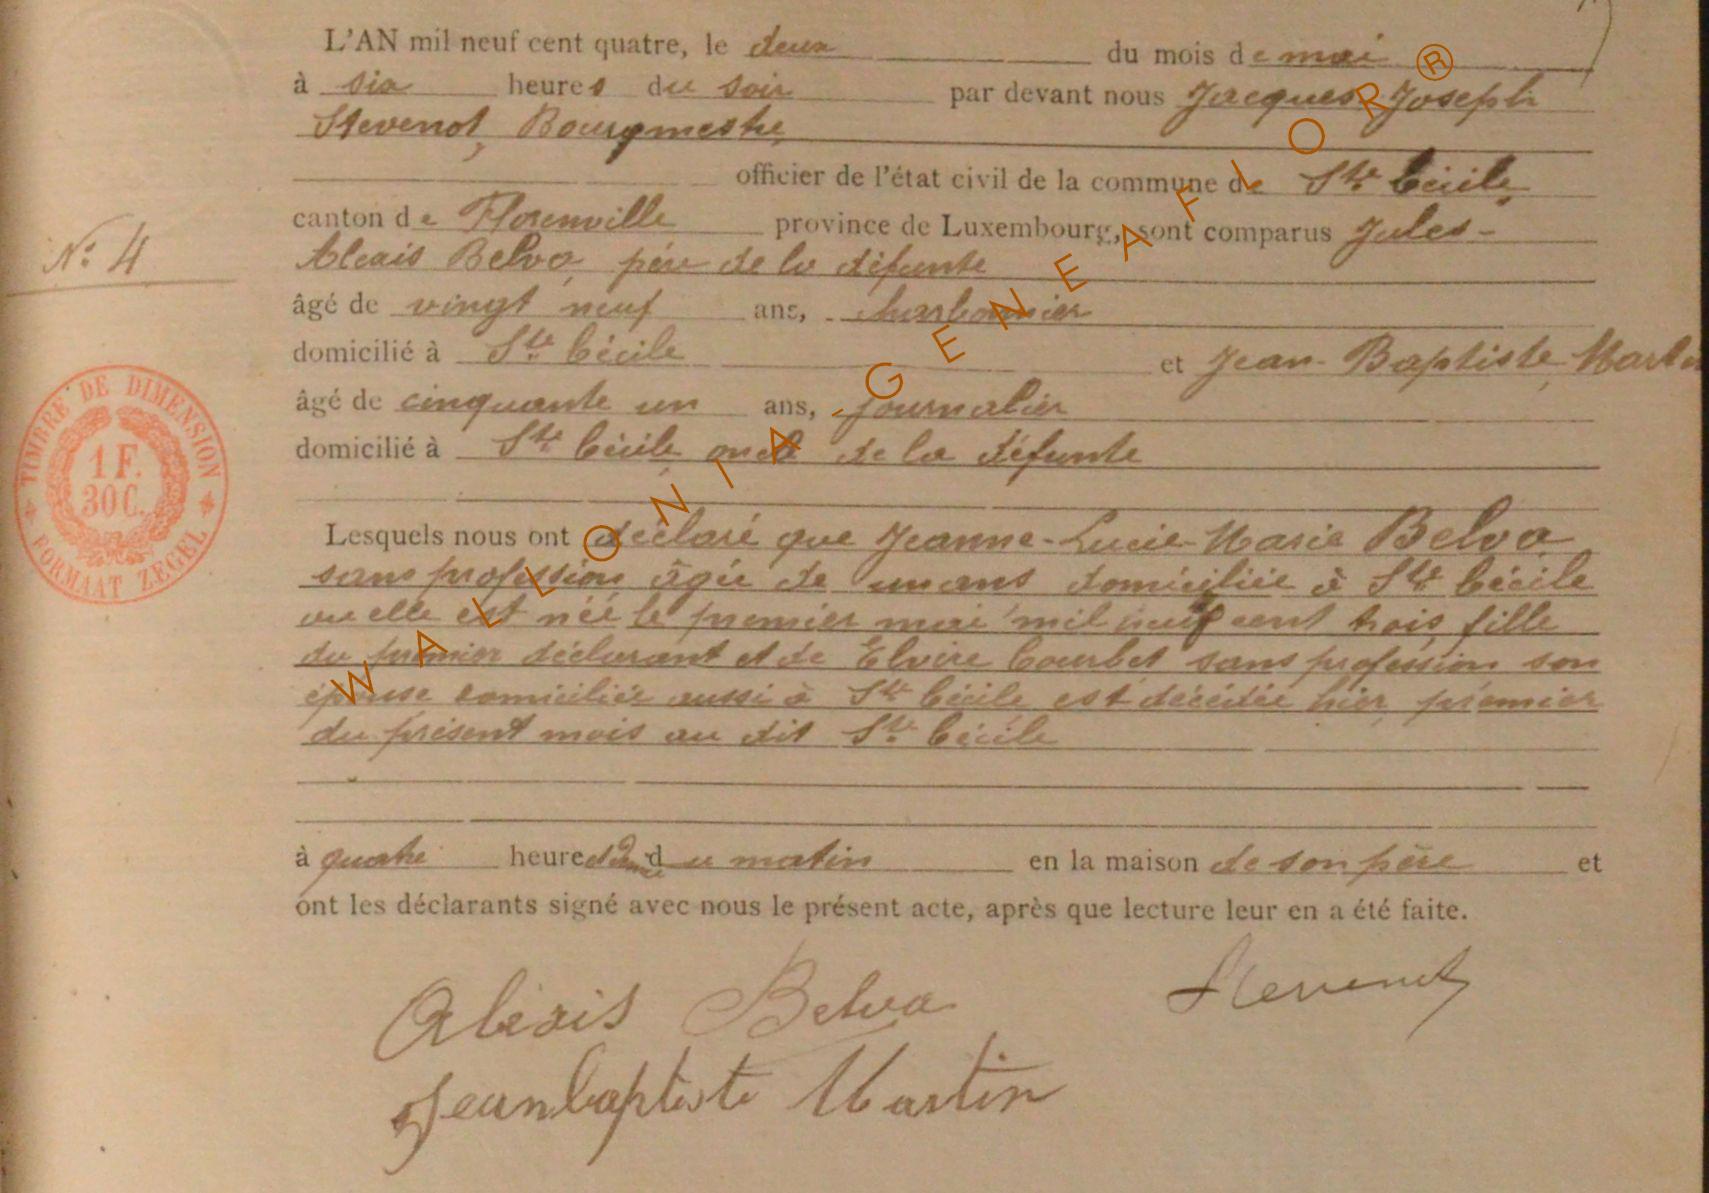 L'AN mil neuf cent quatre, le deux du mois de mai
à six heures du soir par devant nous Jacques Joseph
Stevenot, Bourgmestre,
officier de l'état civil de la commune de Ste Cécile,
canton de Florenville province de Luxembourg, sont comparus Jules-
Alexis Belva, père de la défunte
N° 4
âgé de vingt neuf ans, charbonnier
domicilié à Ste Cécile et Jean-Baptiste Martin
âgé de cinquante un ans, journalier
domicilié à Ste Cécile, oncle de la défunte
TIMBRE DE DIMENSION
1 F.
30 C.
FORMAAT ZEGEL
Lesquels nous ont déclaré que Jeanne-Lucie-Marie Belva
sans profession âgée de un ans domiciliée à Ste Cécile
ou elle est née le premier mai mil neuf cent trois, fille
du premier déclarant et de Elvire Courbet sans profession son
épouse domiciliée aussi à Ste Cécile est décédée hier, premier
du présent mois au dit Ste Cécile
à quatre heures et demie du matin en la maison de son père et
ont les déclarants signé avec nous le présent acte, après que lecture leur en a été faite.
Alexis Belva Stevenot
Jeanbaptiste Martin
WALLONIA-GENEAFLOR®